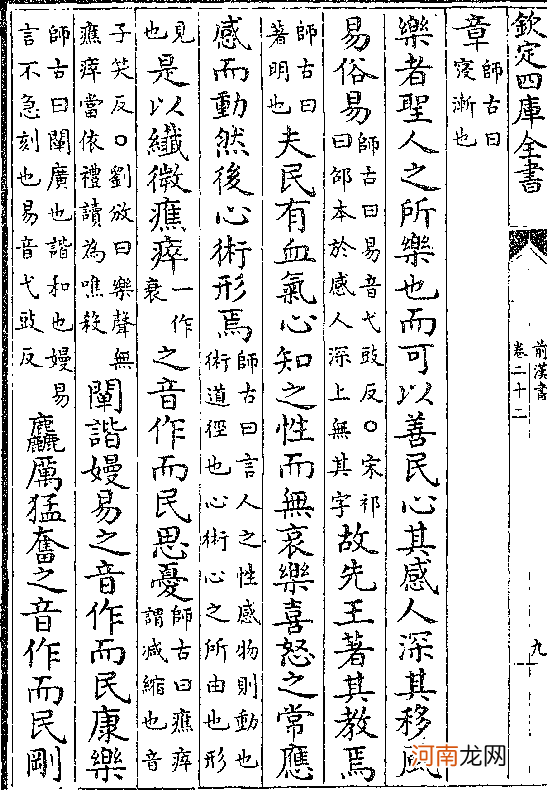 欽定四庫全書
前漢書
卷二十二
九
章師古曰寖漸也
樂者聖人之所樂也而可以善民心其感人深其移風
易俗易師古曰易音弋豉反○宋祁曰邵本於感人深上無其字故先王著其教焉
師古曰著明也夫民有血氣心知之性而無哀樂喜怒之常應
感而動然後心術形焉師古曰言人之性感物則動也術道徑也心術心之所由也形
見也是以纖微癄瘁一作衰之音作而民思憂師古曰癄瘁謂減縮也音
子笑反○劉攽曰樂聲無癄瘁當依禮讀為噍殺闡諧嫚易之音作而民康樂
師古曰闡廣也諧和也嫚易言不急刻也易音弋豉反麤厲猛奮之音作而民剛
河南龙网